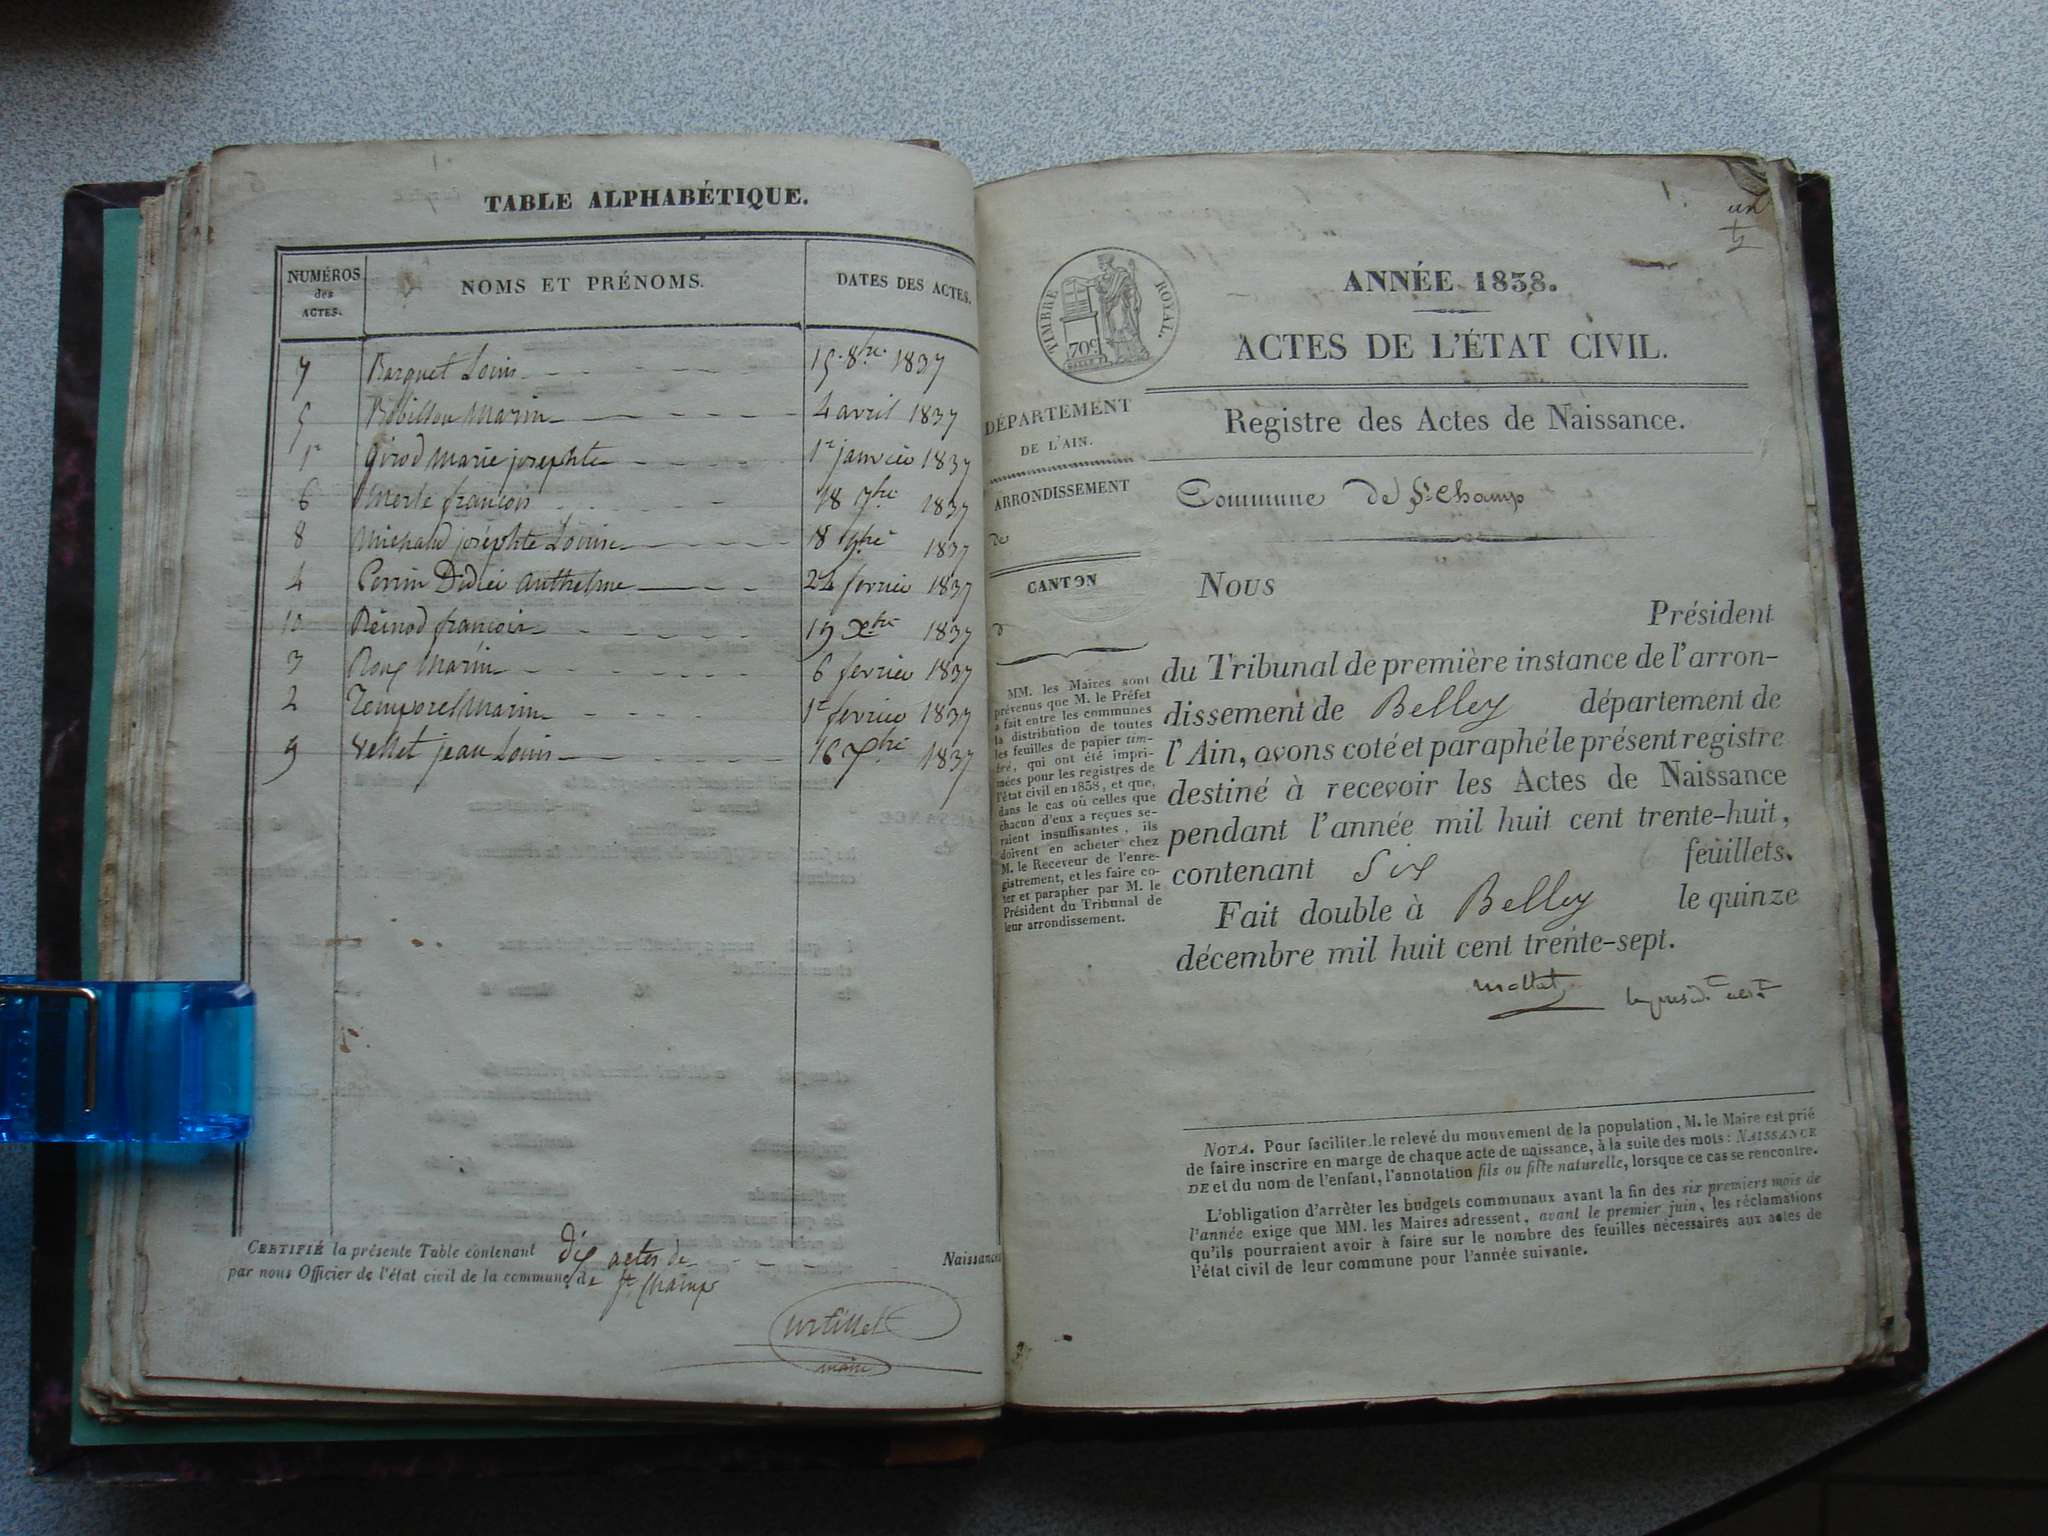 TABLE ALPHABÉTIQUE.
NUMÉROS des ACTES. NOMS ET PRÉNOMS. DATES DES ACTES.
7 Barquet Louis 15 8bre 1837
5 Robillon Marin 4 avril 1837
1r Girod Marie josephte 1r janvier 1837
6 Merle françois 18 7bre 1837
8 Michaud josephte Louise 18 9bre 1837
4 Perrin Didier Anthelme 24 fevrier 1837
10 Reinod françois 19 Xbre 1837
3 Roux Marin 6 fevrier 1837
2 Temporel Marin 1r fevrier 1837
9 Vellet jean Louis 16 Xbre 1837
CERTIFIÉ la présente Table contenant dix actes de Naissances
par nous Officier de l'état civil de la commune de St Champ
maire
un
TIMBRE ROYAL.
70c
ANNÉE 1838.
ACTES DE L'ÉTAT CIVIL.
DÉPARTEMENT
DE L'AIN.
ARRONDISSEMENT
de
CANTON
d
MM. les Maires sont
prévenus que M. le Préfet
a fait entre les communes
la distribution de toutes
les feuilles de papier tim-
bré, qui ont été impri-
mées pour les registres de
l'état civil en 1838, et que,
dans le cas où celles que
chacun d'eux a reçues se-
raient insuffisantes, ils
doivent en acheter chez
M. le Receveur de l'enre-
gistrement, et les faire co-
ter et parapher par M. le
Président du Tribunal de
leur arrondissement.
Registre des Actes de Naissance.
Commune de St Champ
NOUS
Président
du Tribunal de première instance de l'arron-
dissement de Belley département de
l'Ain, avons coté et paraphé le présent registre
destiné à recevoir les Actes de Naissance
pendant l'année mil huit cent trente-huit,
contenant Six feuillets.
Fait double à Belley le quinze
décembre mil huit cent trente-sept.
mollet
NOTA. Pour faciliter le relevé du mouvement de la population, M. le Maire est prié
de faire inscrire en marge de chaque acte de naissance, à la suite des mots: NAISSANCE
DE et du nom de l'enfant, l'annotation fils ou fille naturelle, lorsque ce cas se rencontre.
L'obligation d'arrêter les budgets communaux avant la fin des six premiers mois de
l'année exige que MM. les Maires adressent, avant le premier juin, les réclamations
qu'ils pourraient avoir à faire sur le nombre des feuilles nécessaires aux actes de
l'état civil de leur commune pour l'année suivante.